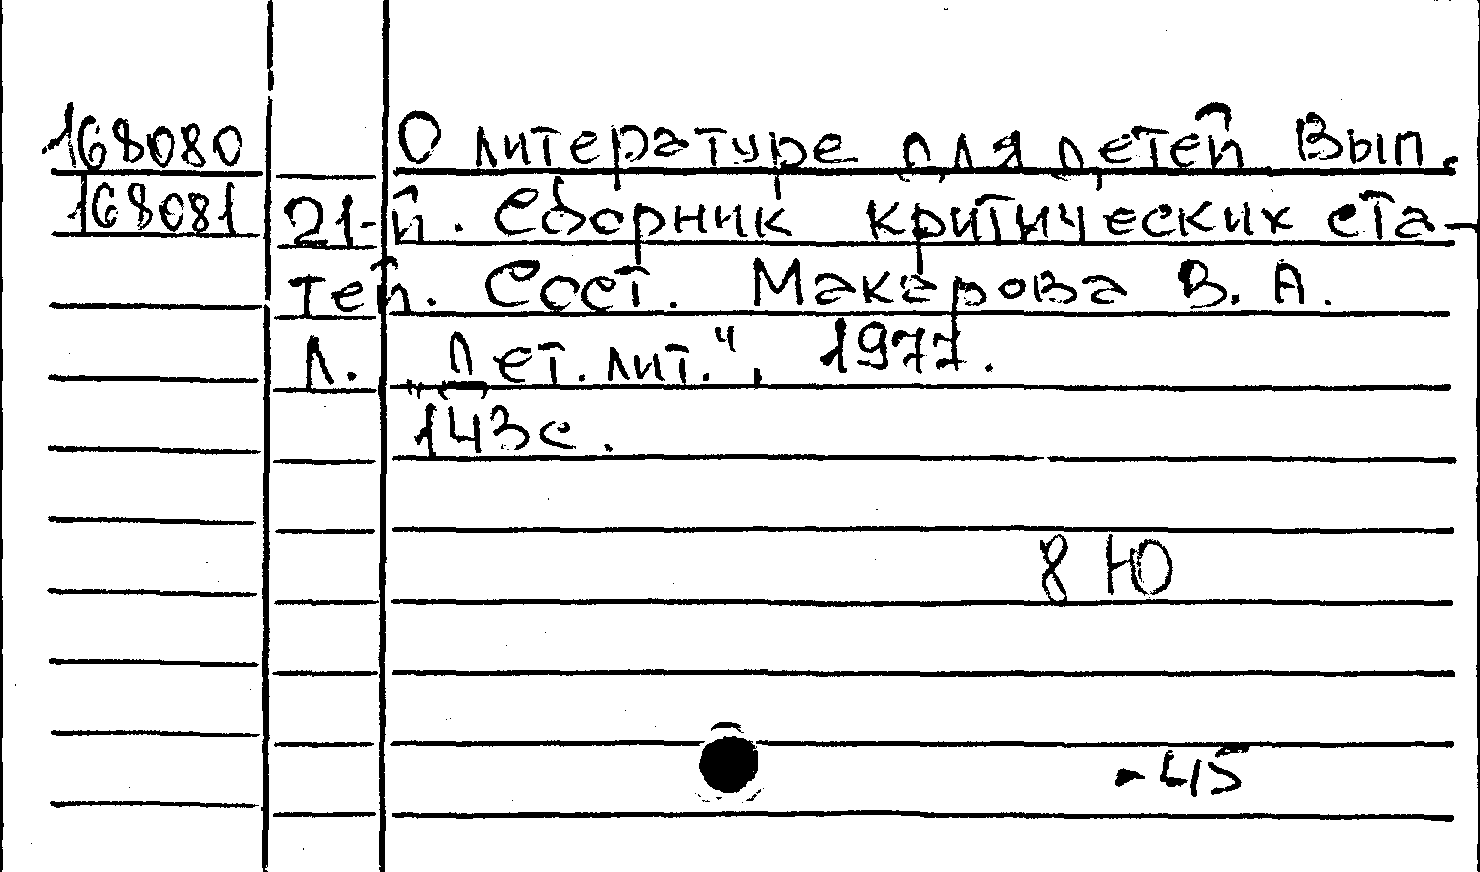 168080 О литературе для детей Вып.
168081 21-й. Сборник критических ста-
тей. Сост. Макарова В. А.
Л. „Дет. лит.", 1977.
143с.
8 Ю
-45